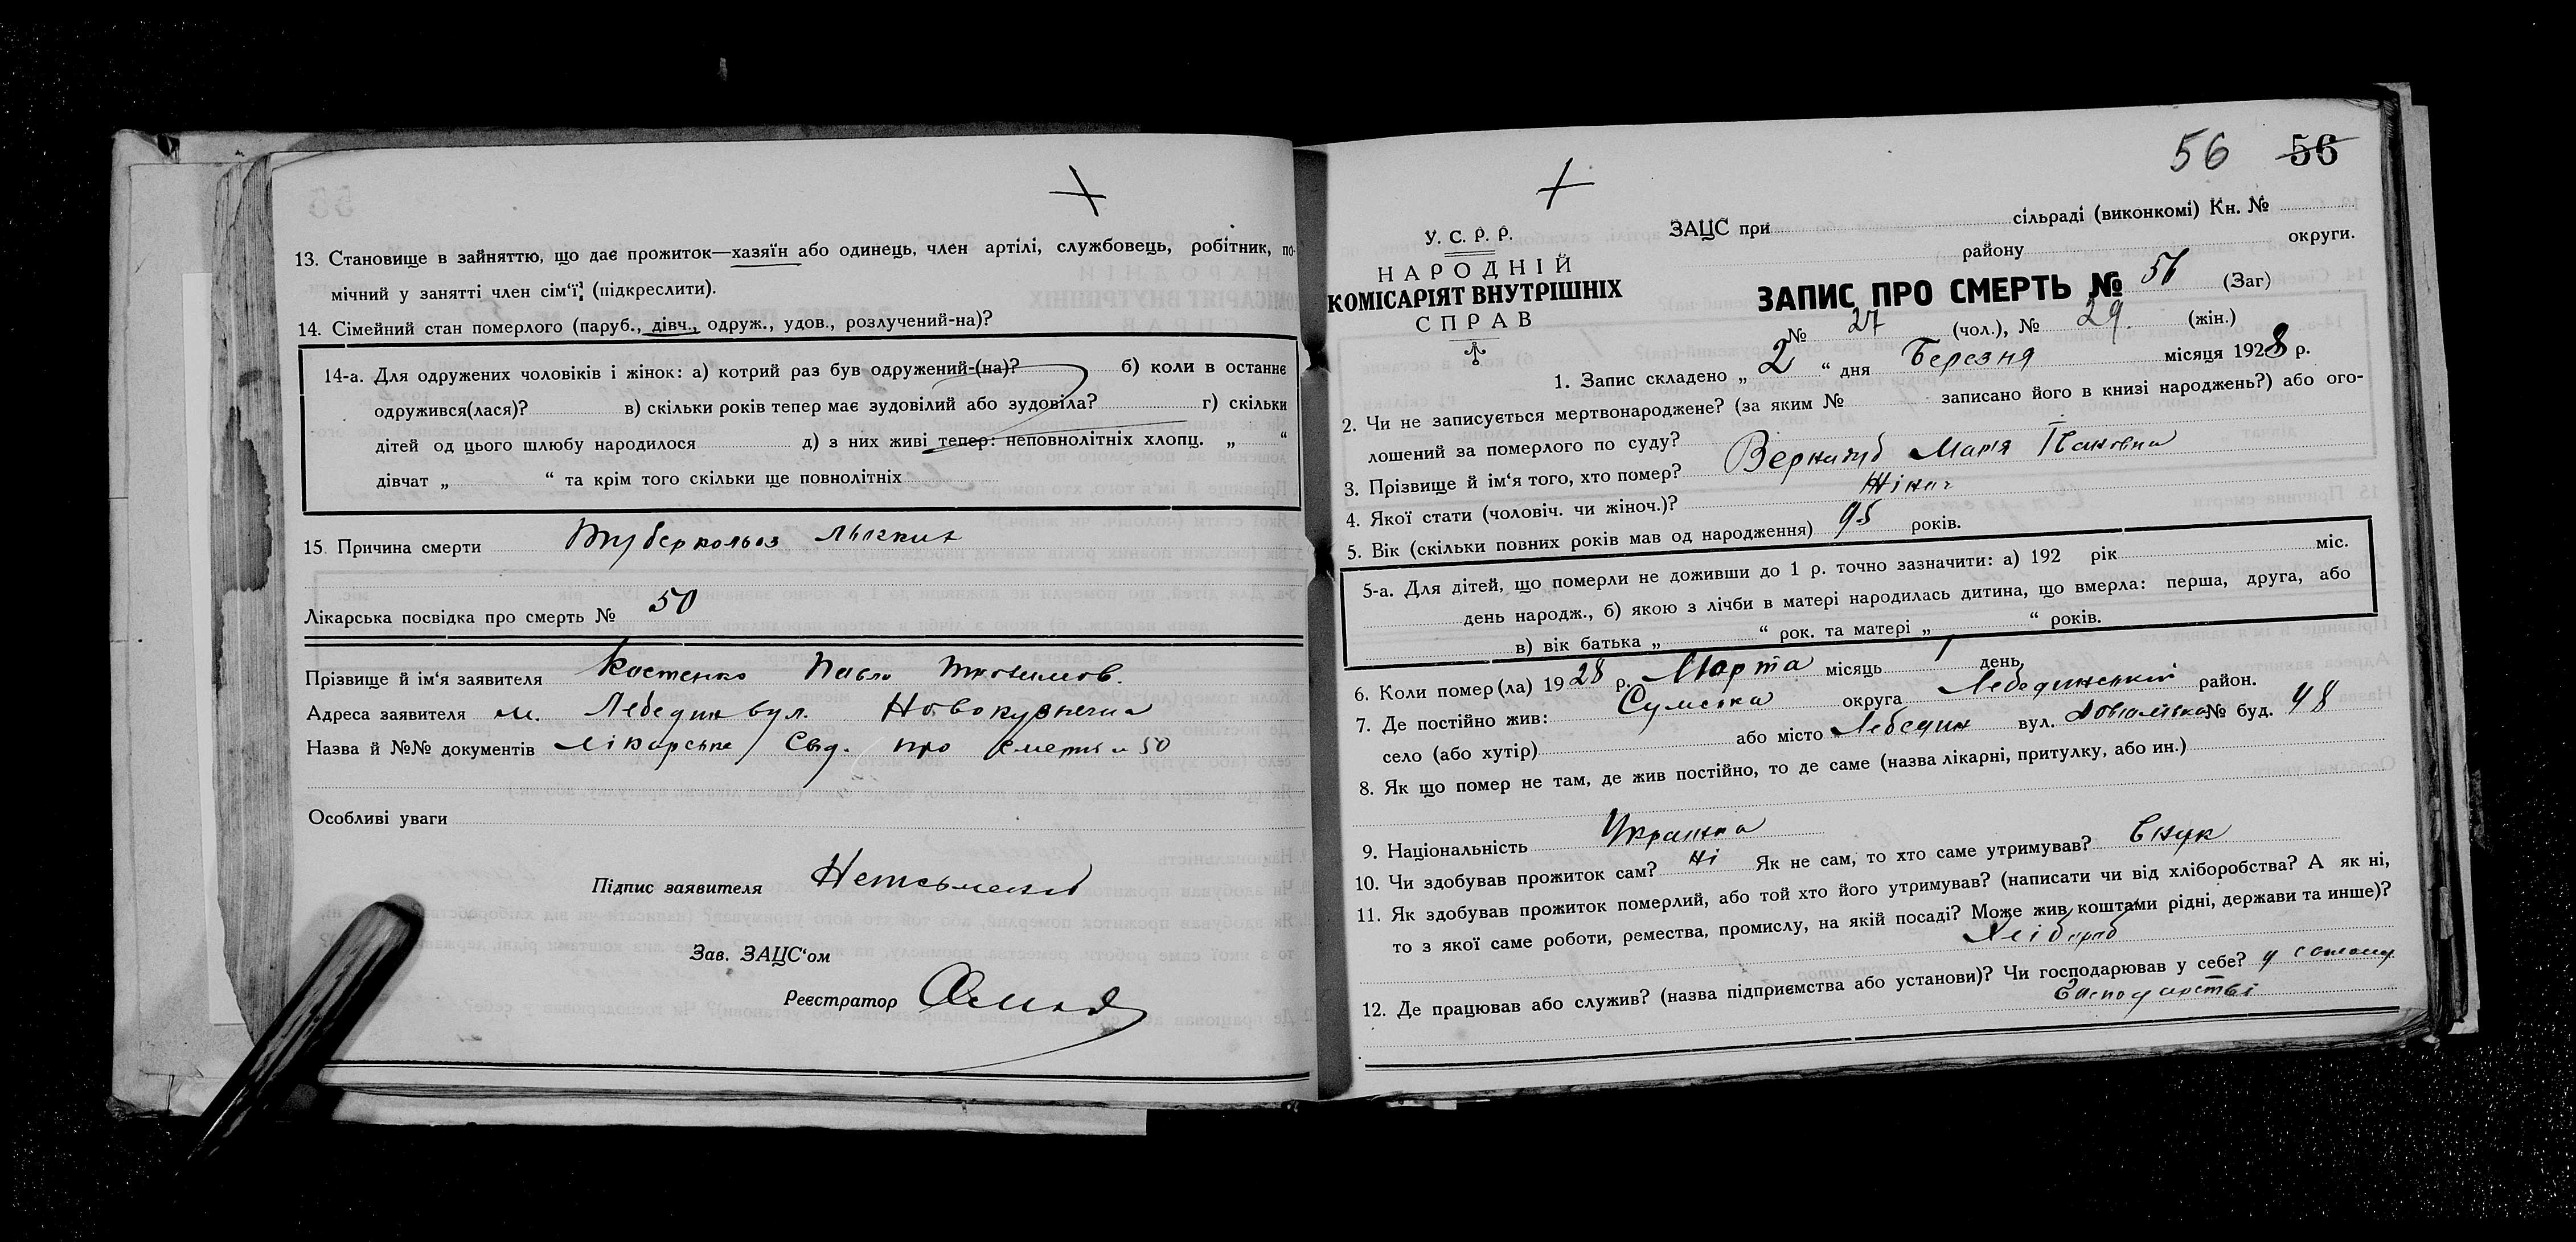 13. Становище в зайняттю, що дає прожиток—хазяїн або одинець, член артілі, службовець, робітник, по-
мічний у занятті член сім‘ї. (підкреслити).
14. Сімейний стан померлого (паруб., дівч., одруж., удов., розлучений-на)?
14-а. Для одружених чоловіків і жінок: а) котрий раз був одружений-(на)? б) коли в останнє
одружився(лася)? в) скільки років тепер має зудовілий або зудовіла? г) скільки
дітей од цього шлюбу народилося д) з них живі тепер: неповнолітніх хлопц. „ “
дівчат „ “ та крім того скільки ще повнолітніх
15. Причина смерти Туберкольоз
Лікарська посвідка про смерть № 50
Прізвище й ім‘я заявителя Костенко Павло
Адреса заявителя м. Лебедин вул.
Назва й №№ документів Лікарське Свід. про смерть № 50
Особливі уваги
Підпис заявителя
Зав. ЗАЦС‘ом
Реєстратор
56 56
У. С. Р. Р.
НАРОДНІЙ
КОМІСАРІЯТ ВНУТРІШНІХ
СПРАВ
ЗАЦС при сільраді (виконкомі) Кн. №
району округи.
ЗАПИС ПРО СМЕРТЬ № 56 (Заг)
№ 27 (чол.), № 29. (жін.)
1. Запис складено „ 2 “ дня Березня місяця 1928 р.
2. Чи не записується мертвонароджене? (за яким № записано його в книзі народжень?) або ого-
лошений за померлого по суду?
3. Прізвище й ім‘я того, хто помер? Марія
4. Якої стати (чоловіч. чи жіноч.)? Жіноч
5. Вік (скільки повних років мав од народження) 95 років.
5-а. Для дітей, що померли не доживши до 1 р. точно зазначити: а) 192 рік міс.
день народж., б) якою з лічби в матері народилась дитина, що вмерла: перша, друга, або
в) вік батька „ “ рок. та матері „ “ років.
6. Коли помер(ла) 1928 р. Марта місяць 1 день
7. Де постійно жив: Сумська округа Лебединський район.
село (або хутір) або місто Лебедин вул. № буд. 48
8. Як що помер не там, де жив постійно, то де саме (назва лікарні, притулку, або ин.)
9. Національність Українка
10. Чи здобував прожиток сам? Ні Як не сам, то хто саме утримував? Внук
11. Як здобував прожиток померлий, або той хто його утримував? (написати чи від хліборобства? А як ні,
то з якої саме роботи, ремества, промислу, на якій посаді? Може жив коштами рідні, держави та инше)?
Хлібороб
12. Де працював або служив? (назва підприємства або установи)? Чи господарював у себе? у
господарстві